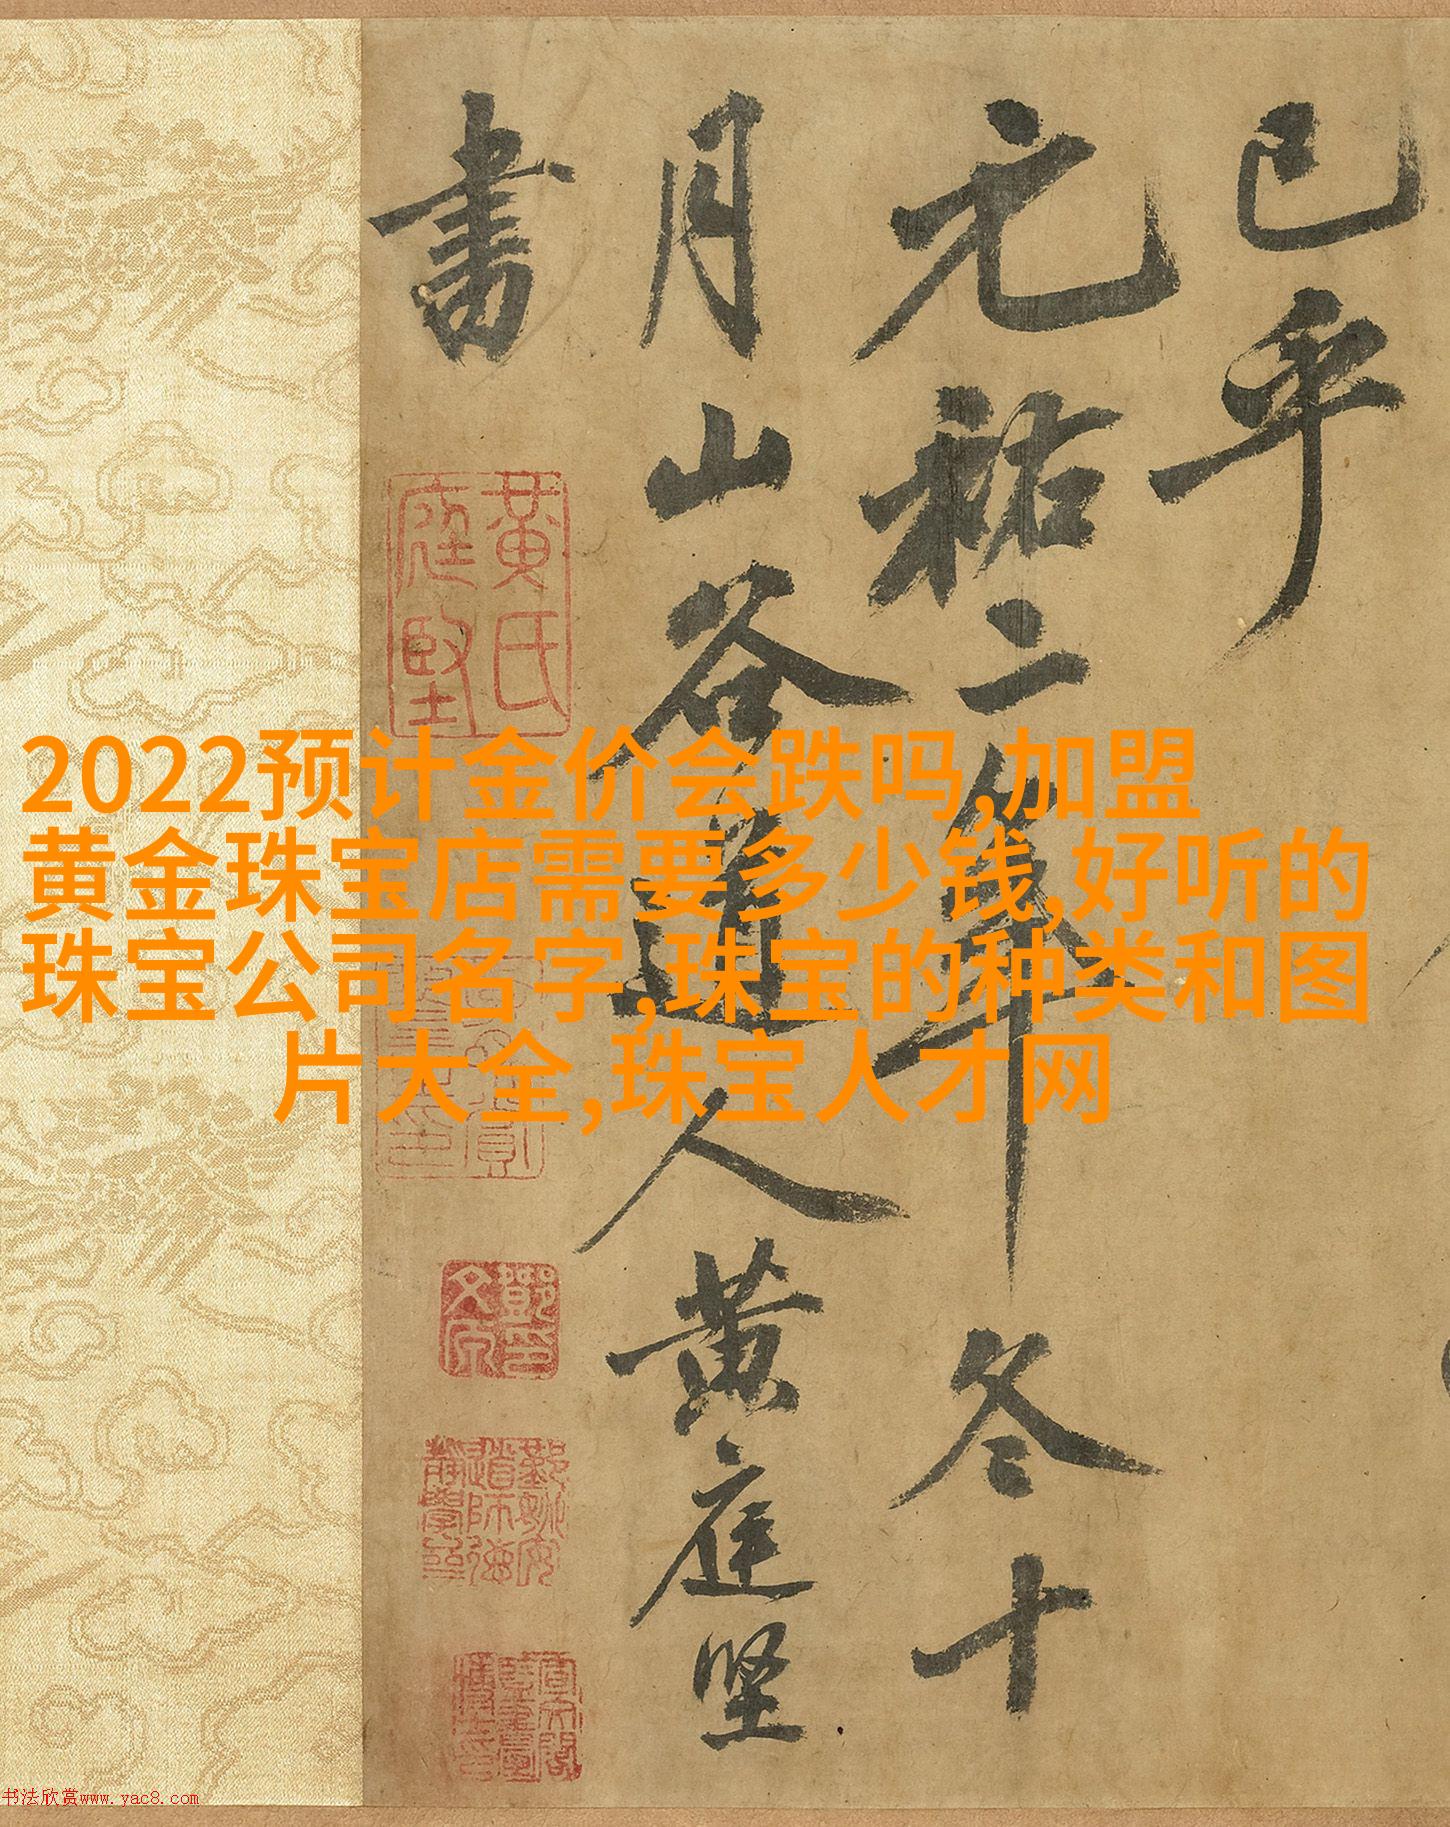 已乎
元祐二年冬十
月山谷道人黄庭坚
書
黄氏
庭堅
2022预计金价会跌吗,加盟
黄金珠宝店需要多少钱,好听的
珠宝公司名字,珠宝的种类和图
片大全,珠宝人才网
书法欣赏www.yac8.com